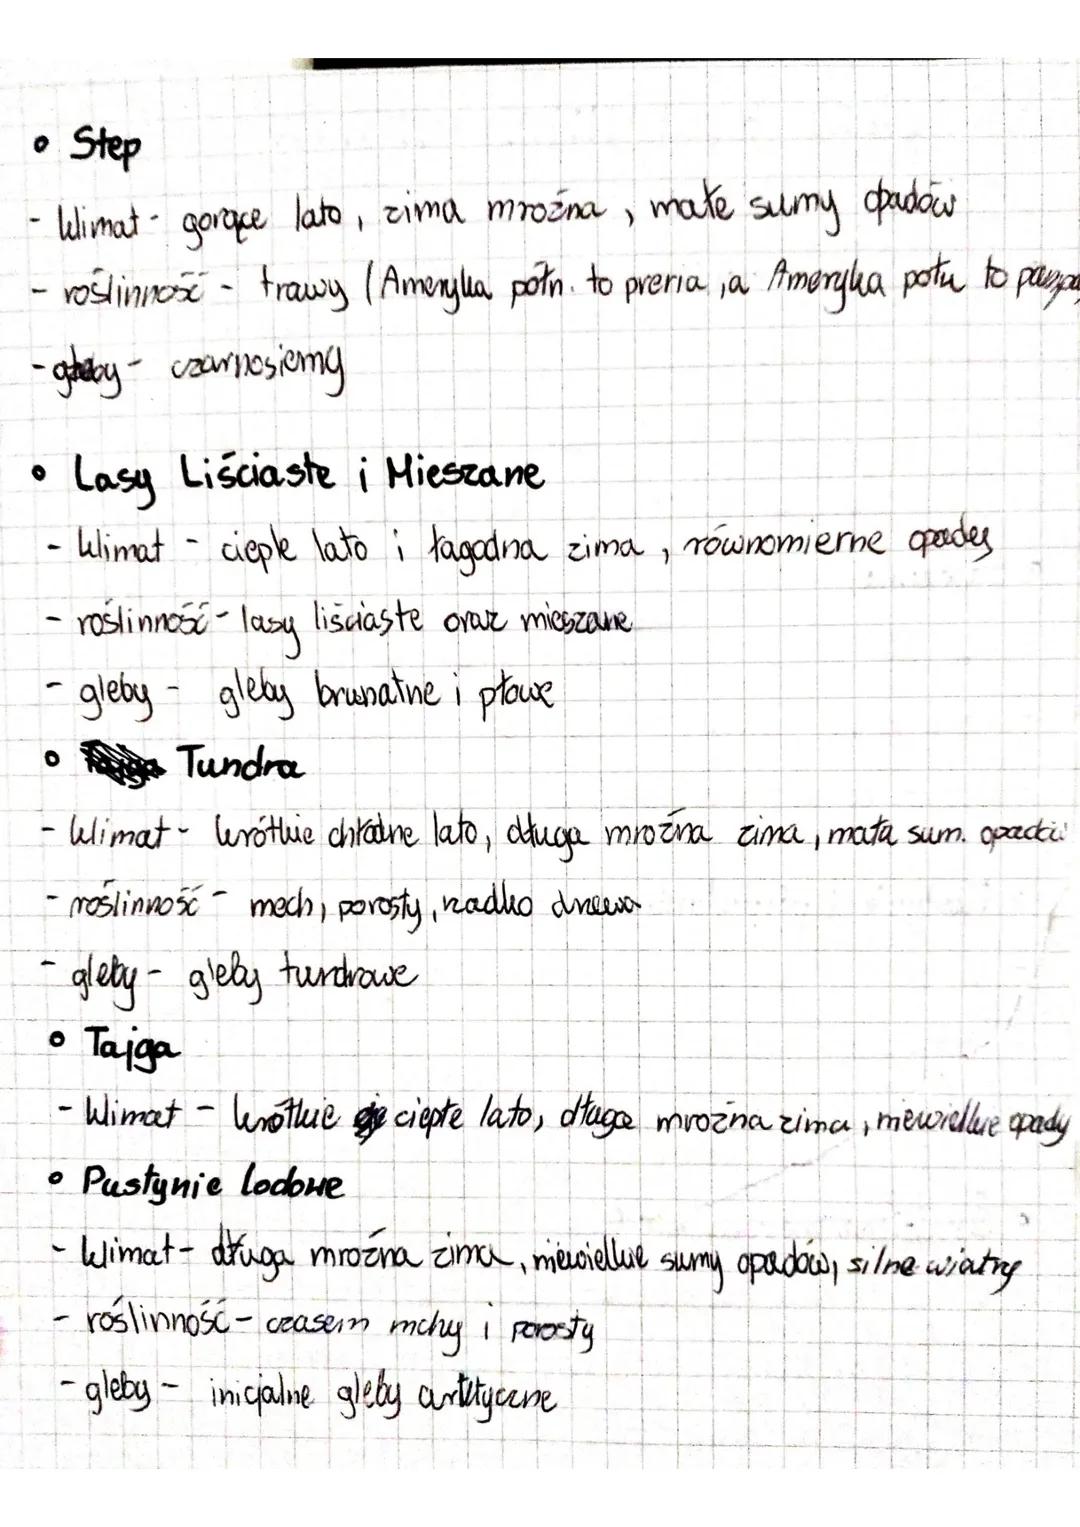 • Step
- klimat - gorące lato, zima mroźna, małe sumy opadów
- roślinność - trawy (Ameryka półn. to preria, a Ameryka połu to pampa
- gleby - czarnosiemy
• Lasy Liściaste i Mieszane
- klimat - ciepłe lato i łagodna zima, równomierne opady
- roślinność - lasy liściaste oraz mieszane
- gleby - gleby brunatne i płowe
• Tundra
- klimat - krótkie chłodne lato, długa mroźna zima, mała sum. opadów
- roślinność - mech, porosty, rzadko drzewa
- gleby - gleby tundrowe
• Tajga
- klimat - krótkie ciepłe lato, długa mroźna zima, niewielkie opady
• Pustynie lodowe
- klimat - długa mroźna zima, niewielkie sumy opadów, silne wiatry
- roślinność - czasem mchy i porosty
- gleby - inicjalne gleby arktyczne